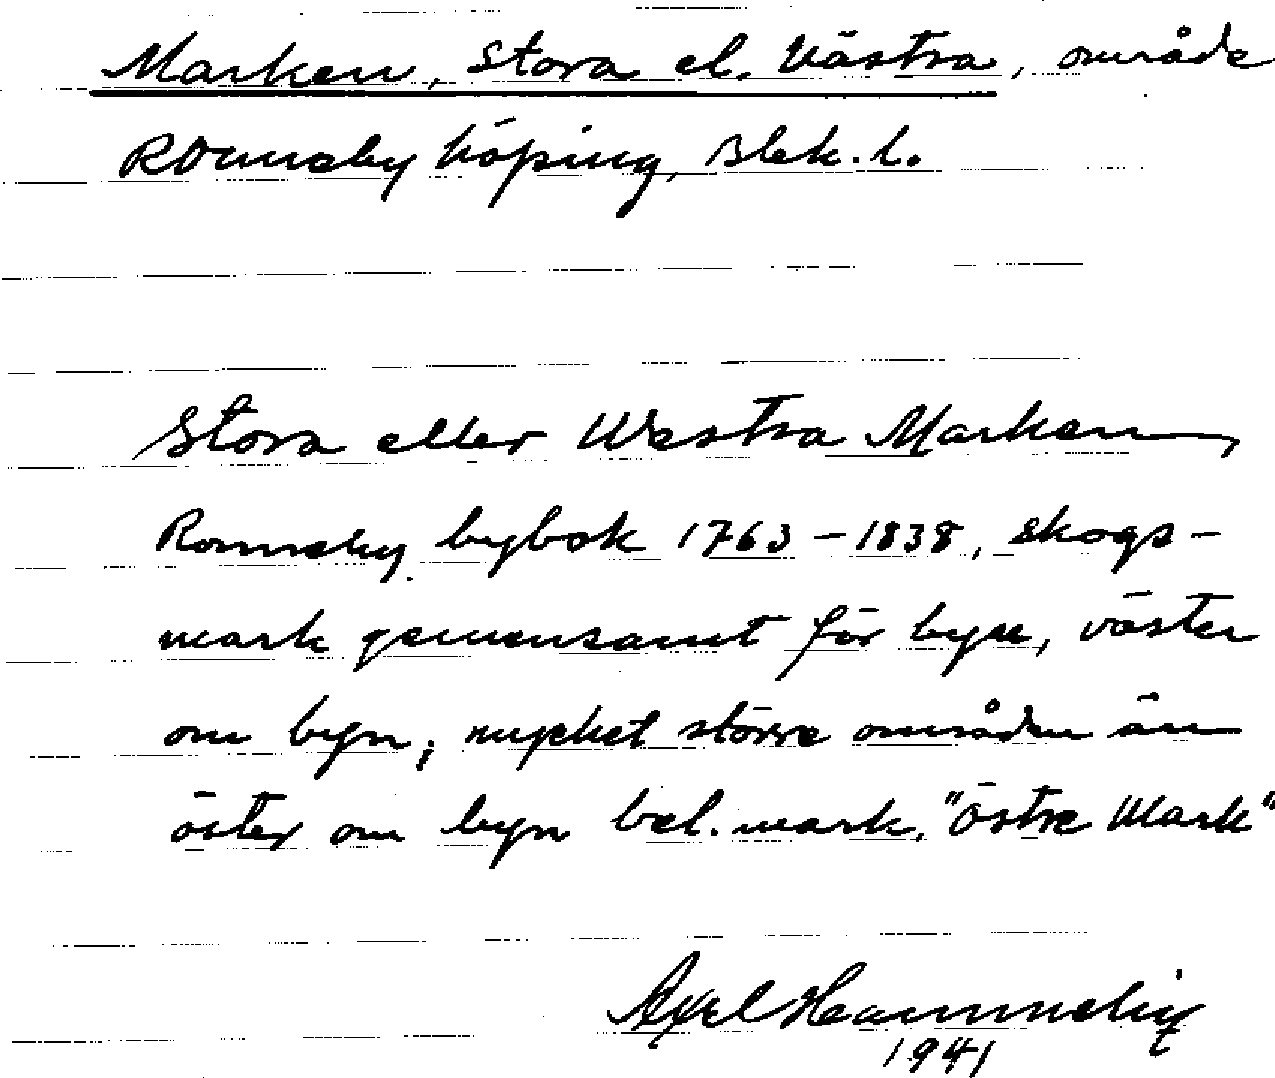 Marken, Stora el. Västra, område
Ronneby köping, Blek. l.
Stora eller Westra Marken,
Ronneby bybok 1763-1838, skogs-
mark gemensamt för byn, väster
om byn; mycket större områden än
öster om byn bel. mark, "Östre Mark"
Axel
1941